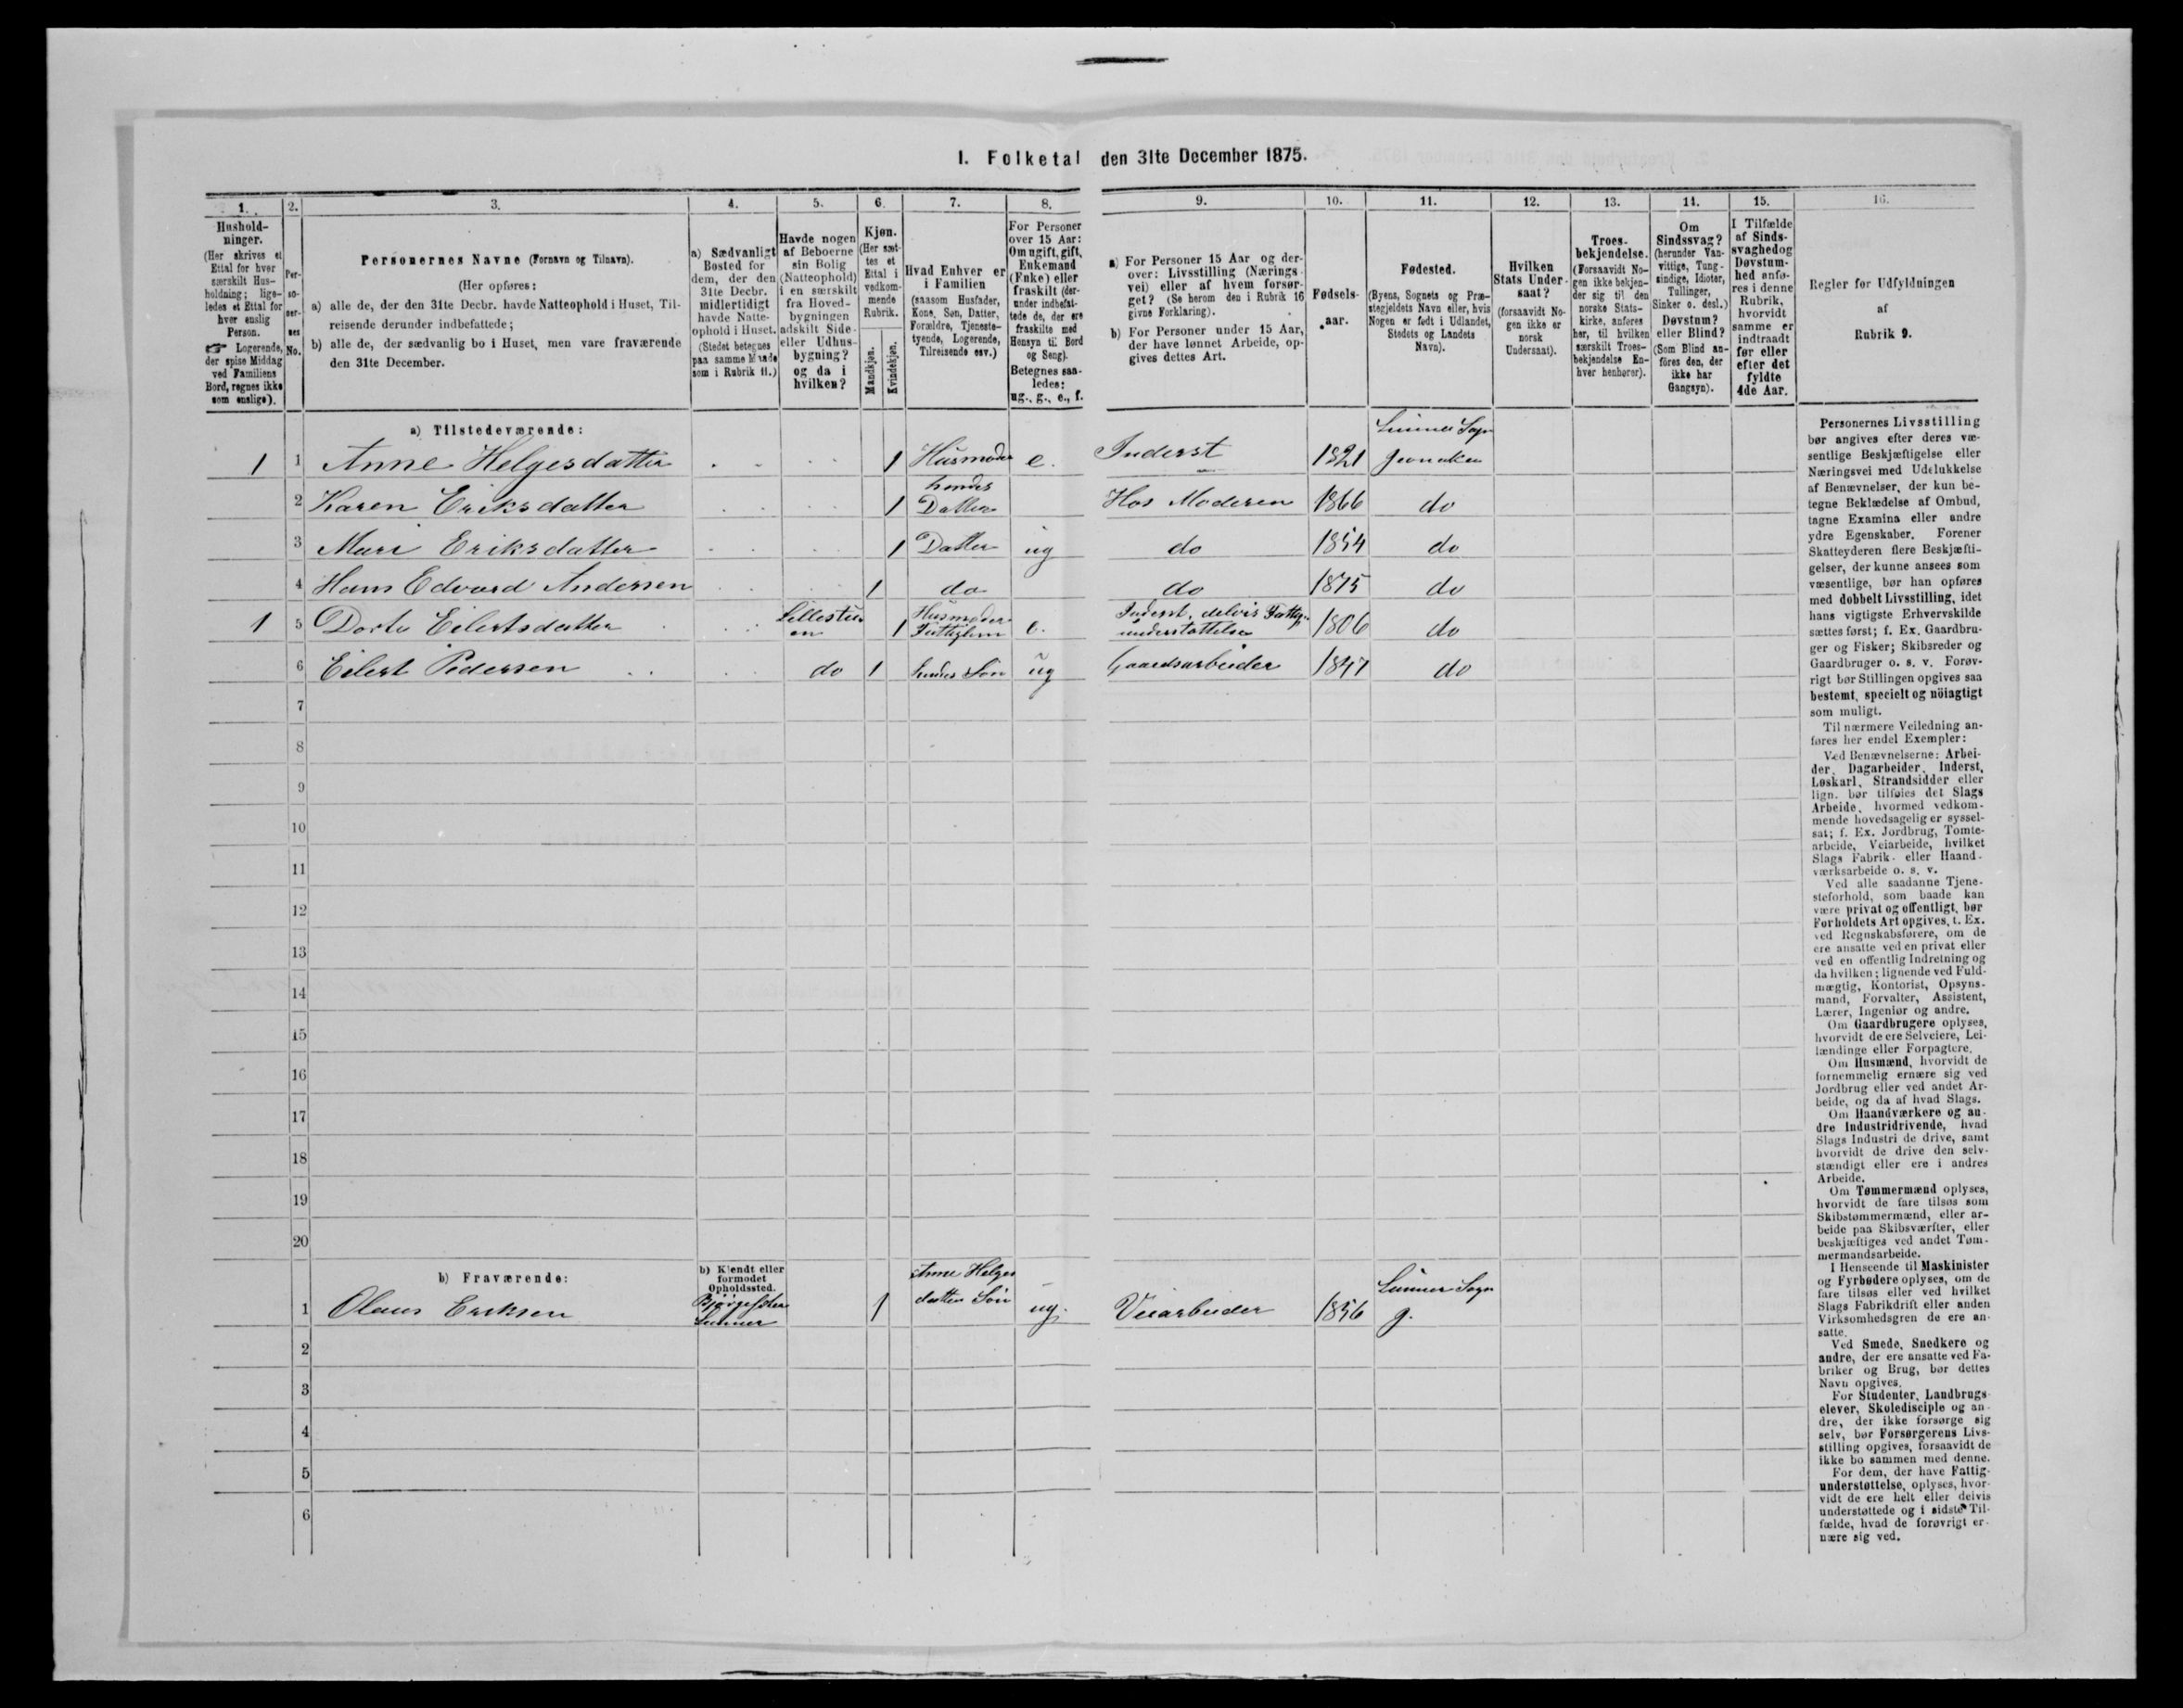 I. Folketal den 31te December 1875.
1. 2. 3. 4. 5. 6. 7. 8. 9. 10. 11. 12. 13. 14. 15. 16.
Hushold-
ninger.
(Her skrives et
Ettal for hver
særskilt Hus-
holdning; lige-
ledes et Ettal for
hver enslig
Person.
☞ Logerende,
der spise Middag
ved Familiens
Bord, regnes ikke
som enslige).
Per-
so-
ner-
nes
No.
Personernes Navne (Fornavn og Tilnavn).
(Her opføres:
a) alle de, der den 31te Decbr. havde Natteophold i Huset, Til-
reisende derunder indbefattede;
b) alle de, der sædvanlig bo i Huset, men vare fraværende
den 31te December.
a) Sædvanligt
Bosted for
dem, der den
31te Decbr.
midlertidigt
havde Natte-
ophold i Huset.
(Stedet betegnes
paa samme Maade
som i Rubrik 11.)
Havde nogen
af Beboerne
sin Bolig
(Natteophold)
i en særskilt
fra Hoved-
bygningen
adskilt Side-
eller Udhus-
bygning?
og da i
hvilken?
Kjøn.
(Her sæt-
tes et
Ettal i
vedkom-
mende
Rubrik.
Mandkjøn.
Kvindekjøn.
Hvad Enhver er
i Familien
(saasom Husfader,
Kone, Søn, Datter,
Forældre, Tjeneste-
tyende, Logerende,
Tilreisende osv.)
For Personer
over 15 Aar:
Om ugift, gift,
Enkemand
(Enke) eller
fraskilt (der-
under indbefat-
tede de, der ere
fraskilte med
Hensyn til Bord
og Seng).
Betegnes saa-
ledes:
ug., g., e., f.
a) For Personer 15 Aar og der-
over: Livsstilling (Nærings-
vei) eller af hvem forsør-
get? (Se herom den i Rubrik 16
givne Forklaring).
b) For Personer under 15 Aar,
der have lønnet Arbeide, op-
gives dettes Art.
Fødsels-
aar.
Fødested.
(Byens, Sognets og Præ-
stegjeldets Navn eller, hvis
Nogen er født i Udlandet,
Stedets og Landets
Navn).
Hvilken
Stats Under-
saat?
(forsaavidt No-
gen ikke er
norsk
Undersaat).
Troes-
bekjendelse.
(Forsaavidt No-
gen ikke bekjen-
der sig til den
norske Stats-
kirke, anføres
her, til hvilken
særskilt Troes-
bekjendelse En-
hver henhører).
Om
Sindssvag?
(herunder Van-
vittige, Tung-
sindige, Idioter,
Tullinger,
Sinker o. desl.)
Døvstum?
eller Blind?
(Som Blind an-
föres den, der
ikke har
Gangsyn).
I Tilfælde
af Sinds-
svaghed og
Døvstum-
hed anfø-
res i denne
Rubrik,
hvorvidt
samme er
indtraadt
før eller
efter det
fyldte
4de Aar.
Regler for Udfyldningen
af
Rubrik 9.
a) Tilstedeværende:
1 1 Anne Helgesdatter 1 Husmoder e. Inderst 1821 Lunner Sogn Jevnaker
2 Karen Eriksdatter 1 hendes Datter Hos Moderen 1866 do
3 Mari Eriksdatter 1 Datter ug do 1854 do
4 Hans Edvard Andersen 1 do do 1875 do
1 5 Dorte Eilertsdatter 1 Husmoder e. Inderst, delvis understøttelse 1806 do
6 Eilert Pedersen do 1 hendes Søn ug Gaardsarbeider 1847 do
7
8
9
10
11
12
13
14
15
16
17
18
19
20
b) Fraværende:
b) Kjendt eller
formodet
Opholdssted.
1 Olaus Eriksen Lunner 1 Anne Helges datter Søn ug. Veiarbeider 1856 Lunner Sogn J.
2
3
4
5
6
Personernes Livsstilling
bør angives efter deres væ-
sentlige Beskjæftigelse eller
Næringsvei med Udelukkelse
af Benævnelser, der kun be-
tegne Beklædelse af Ombud,
tagne Examina eller andre
ydre Egenskaber. Forener
Skatteyderen flere Beskjæfti-
gelser, der kunne ansees som
væsentlige, bør han opføres
med dobbelt Livsstilling, idet
hans vigtigste Erhvervskilde
sættes først; f. Ex. Gaardbru-
ger og Fisker; Skibsreder og
Gaardbruger o. s. v. Forøv-
rigt bør Stillingen opgives saa
bestemt, specielt og nöiagtigt
som muligt.
Til nærmere Veiledning an-
føres her endel Exempler:
Ved Benævnelserne: Arbei-
der, Dagarbeider, Inderst,
Løskarl, Strandsidder eller
lign. bør tilføies det Slags
Arbeide, hvormed vedkom-
mende hovedsagelig er syssel-
sat; f. Ex. Jordbrug, Tomte-
arbeide, Veiarbeide, hvilket
Slags Fabrik- eller Haand-
værksarbeide o. s. v.
Ved alle saadanne Tjene-
steforhold, som baade kan
være privat og offentligt, bør
Forholdets Art opgives, t. Ex.
ved Regnskabsførere, om de
ere ansatte ved en privat eller
ved en offentlig Indretning og
da hvilken; lignende ved Fuld-
mægtig, Kontorist, Opsyns-
mand, Forvalter, Assistent,
Lærer, Ingeniør og andre.
Om Gaardbrugere oplyses,
hvorvidt de ere Selveiere, Lei-
lændinge eller Forpagtere.
Om Husmænd, hvorvidt de
fornemmelig ernære sig ved
Jordbrug eller ved andet Ar-
beide, og da af hvad Slags.
Om Haandværkere og an-
dre Industridrivende, hvad
Slags Industri de drive, samt
hvorvidt de drive den selv-
stændigt eller ere i andres
Arbeide.
Om Tømmermænd oplyses,
hvorvidt de fare tilsøs som
Skibstømmermænd, eller ar-
beide paa Skibsværfter, eller
beskjæftiges ved andet Tøm-
mermandsarbeide.
I Henseende til Maskinister
og Fyrbødere oplyses, om de
fare tilsøs eller ved hvilket
Slags Fabrikdrift eller anden
Virksomhedsgren de ere an-
satte.
Ved Smede, Snedkere og
andre, der ere ansatte ved Fa-
briker og Brug, bør dettes
Navn opgives.
For Studenter, Landbrugs-
elever, Skoledisciple og an-
dre, der ikke forsørge sig
selv, bør Forsørgerens Livs-
stilling opgives, forsaavidt de
ikke bo sammen med denne.
For dem, der have Fattig-
understøttelse, oplyses, hvor-
vidt de ere helt eller delvis
understøttede og i sidste Til-
fælde, hvad de forøvrigt er-
nære sig ved.